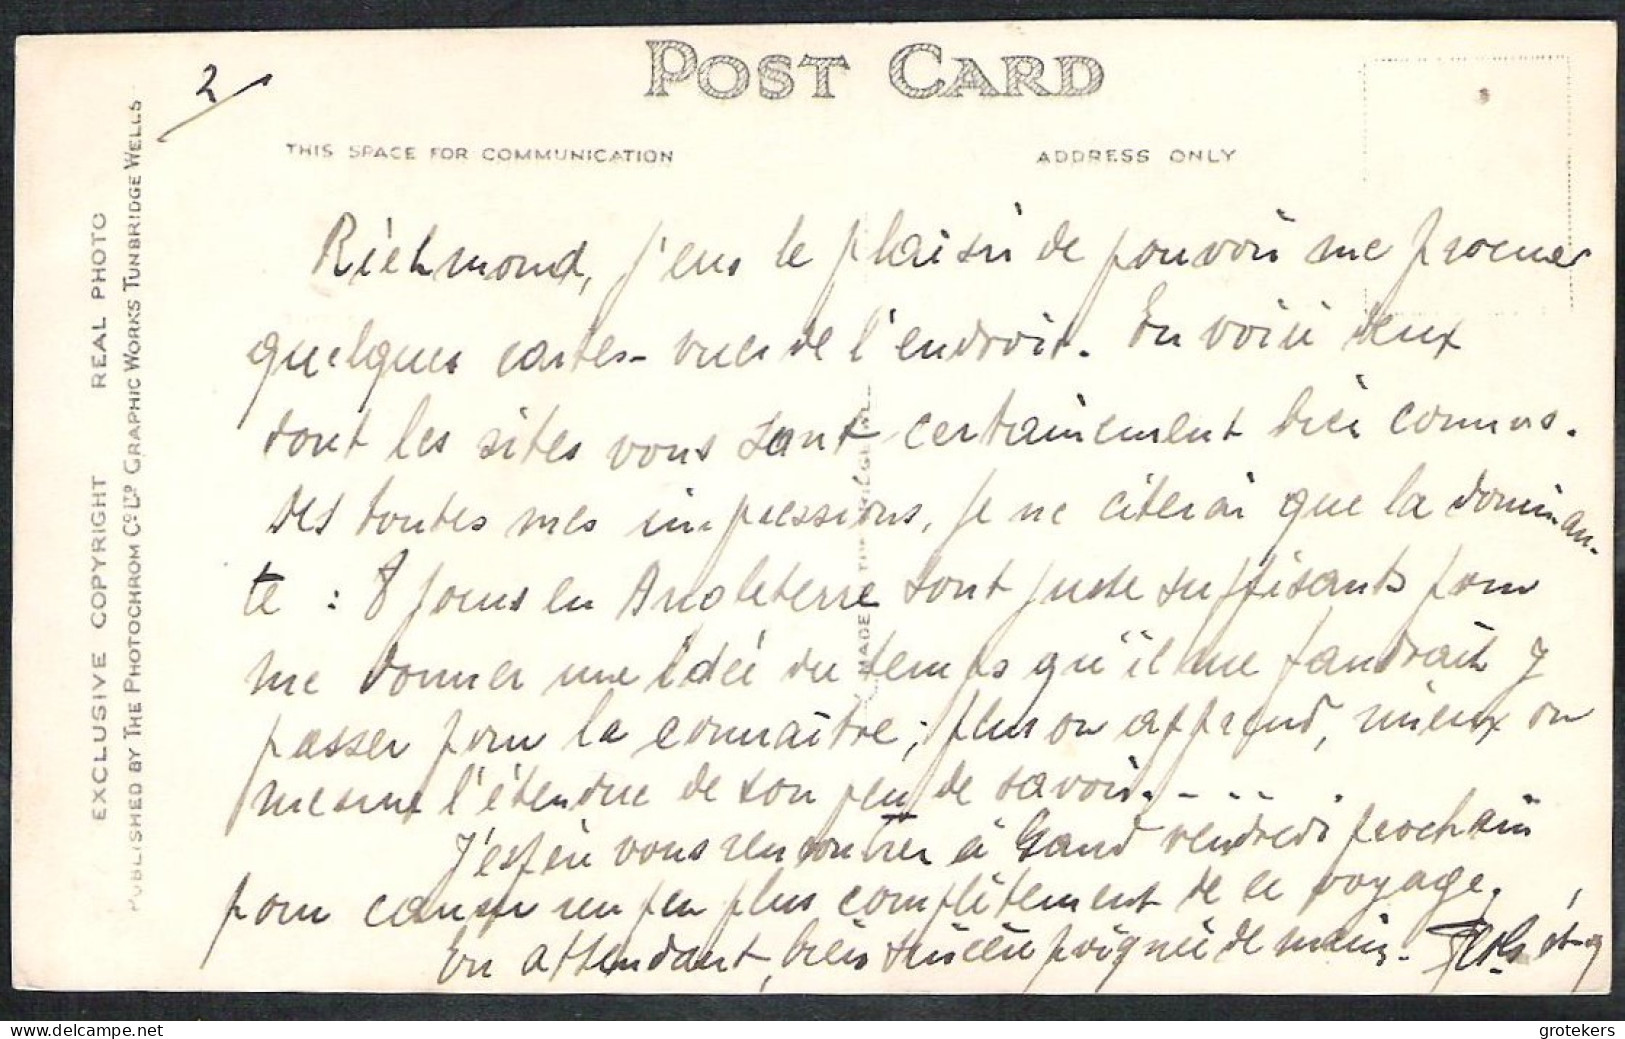 2
POST CARD
THIS SPACE FOR COMMUNICATION
ADDRESS ONLY
EXCLUSIVE COPYRIGHT REAL PHOTO
PUBLISHED BY THE PHOTOCHROM CO LTD GRAPHIC WORKS TUNBRIDGE WELLS
MADE
Richmond, j'eus le plaisir de pouvoir me procurer
quelques cartes-vues de l'endroit. En voici deux
dont les sites vous sont certainement bien connus.
Des toutes mes impressions, je ne citerai que la dominan-
te : 8 jours en Angleterre sont juste suffisants pour
me donner une idée du temps qu'il me faudrait y
passer pour la connaître; plus on apprend, mieux on
mesure l'étendue de son peu de savoir. - - - .
J'espère vous rencontrer à Gand vendredi prochain
pour causer un peu plus complètement de ce voyage.
En attendant, bien sincère poignée de main.
grotekers